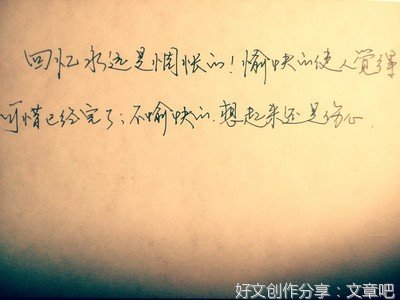 回忆永远是惆怅的！愉快的使人觉得
可惜已经完了；不愉快的.想起来还是伤心.
好文创作分享：文章吧